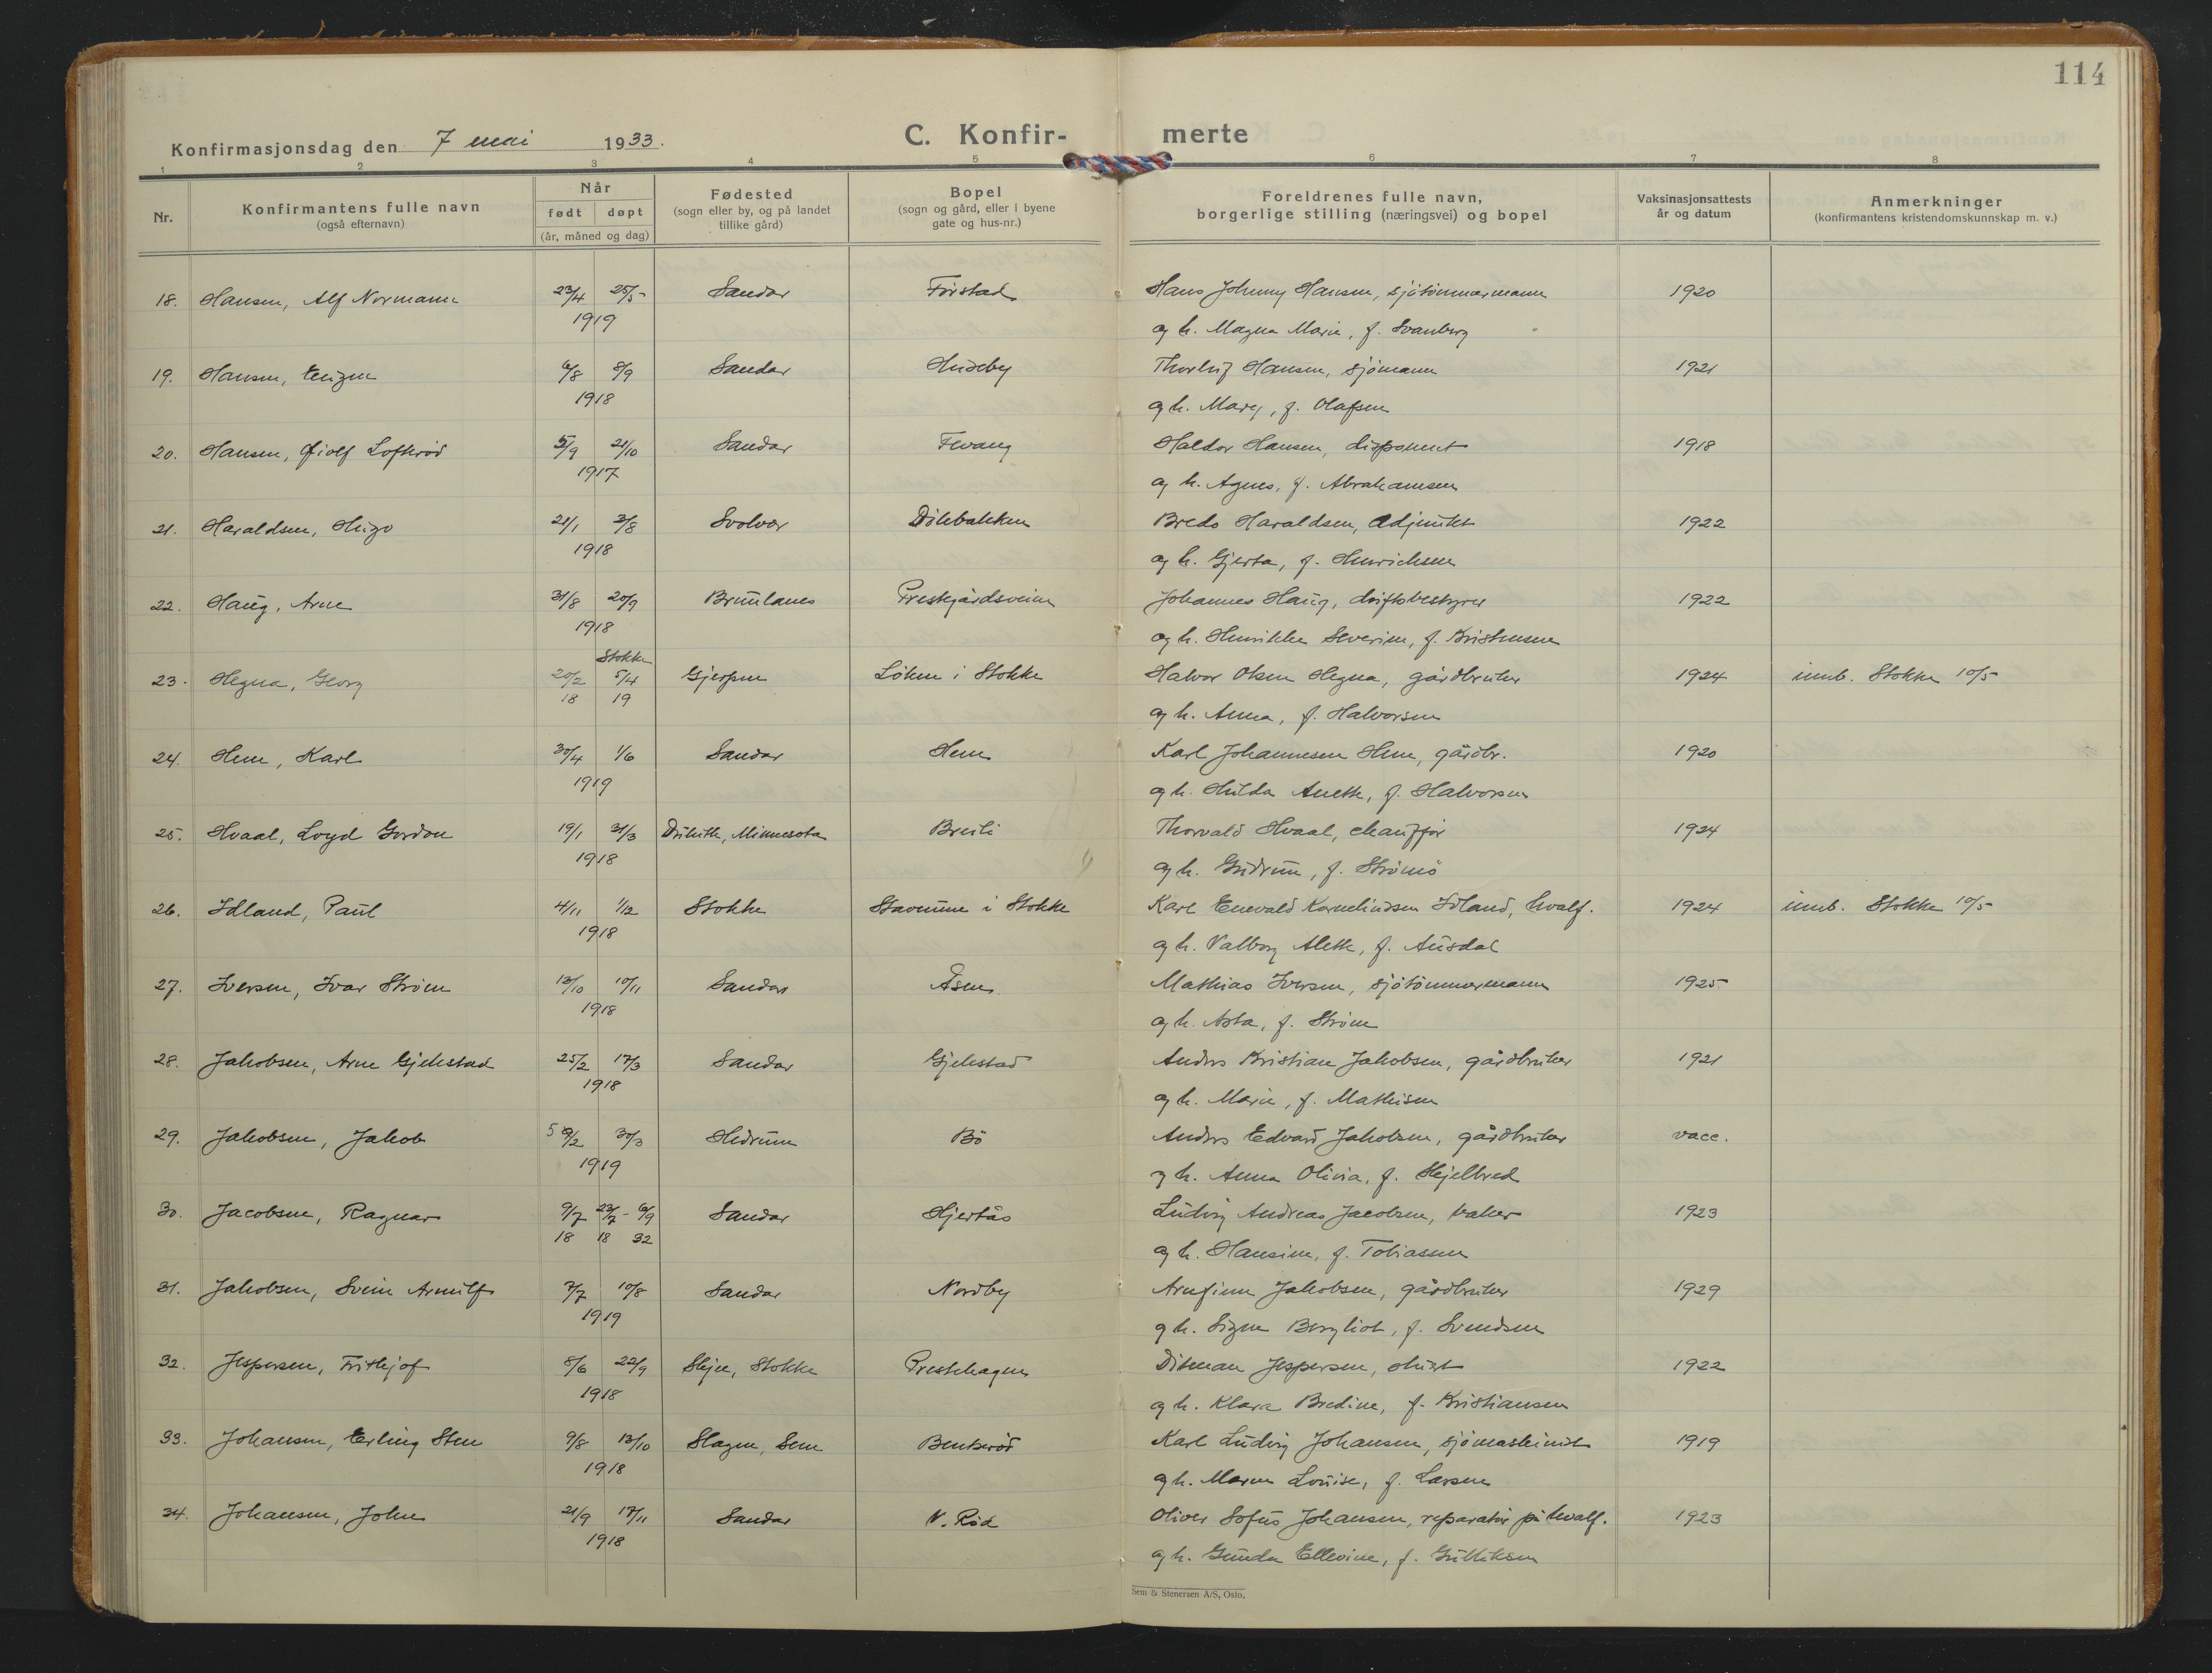 114
Konfirmasjonsdag den 7 mai 1933.
C. Konfir- merte
1 2 3 4 5 6 7 8
Nr.
Konfirmantens fulle navn
(også efternavn)
Når
født døpt
(år, måned og dag)
Fødested
(sogn eller by, og på landet
tillike gård)
Bopel
(sogn og gård, eller i byene
gate og hus-nr.)
Foreldrenes fulle navn,
borgerlige stilling (næringsvei) og bopel
Vaksinasjonsattests
år og datum
Anmerkninger
(konfirmantens kristendomskunnskap m. v.)
18. Hansen, Alf Normann 23/4 25/5 Sandar Furstad Hans Johnny Hansen, sjötömmermann 1920
1919 og h. Magna Marie, f. Svanberg
19. Hansen, Eugen 6/8 8/9 Sandar Huseby Thorleif Hansen, sjömann 1921
1918 og h. Mary, f. Olafsen
20. Hansen, Loftsröd 5/9 21/10 Sandar Fevang Haldor Hansen, disponent 1918
1917 og h. Agnes, f. Abrahamsen
21. Haraldsen, Hugo 21/1 3/8 Svolvær Dölebakken Bredo Haraldsen, Adjunkt 1922
1918 og h. Gjerta, f. Henrichsen
22. Haug, Arne 31/8 20/9 Brunlanes Prestegårdsveien Johannes Haug, driftsbestyrer 1922
1918 og h. Henrikke Severine, f. Kristensen
Stokke
23. Hegna, Georg 20/2 5/4 Gjerpen Löken i Stokke Halvor Olsen Hegna, gårdbruker 1924 innb. Stokke 10/5
18 19 og h. Anna, f. Halvorsen
24. Hem, Karl 30/4 1/6 Sandar Hem Karl Johannesen Hem, gårdbr. 1920
1919 og h. Hilda Anette, f. Halvorsen
25. Hvaal, Loyd Gordon 19/1 31/3 Duluth, Minnesota Breili Thorvald Hvaal, chaufför 1924
1918 og h. Gudrun, f. Strömö
26. Idland, Paul 4/11 1/12 Stokke Stavnum i Stokke Karl Enevald Korneliudsen Idland, hvalf. 1924 innb. Stokke 10/5
1918 og h. Valborg Alette, f. Ausdal
27. Iversen, Ivar Ström 13/10 10/11 Sandar Åsen Mathias Iversen, sjötömmermann 1925
1918 og h. Asta, f. Ström
28. Jakobsen, Arne Gjekstad 25/2 17/3 Sandar Gjekstad Anders Kristian Jakobsen, gårdbruker 1921
1918 og h. Marie, f. Mathisen
29. Jakobsen, Jakob 5/2 30/3 Hedrum Bö Anders Edvard Jakobsen, gårdbruker vacc.
1919 og h. Anna Olivia, f. Skjelbred
30. Jacobsen, Ragnar 9/7 23/7 - 6/9 Sandar Hjertås Ludvig Andreas Jacobsen, baker 1923
18 18 32 og h. Hansine, f. Tobiassen
31. Jakobsen, Svein Arnulf 7/7 10/8 Sandar Nordby Arnfinn Jakobsen, gårdbruker 1929
1919 og h. Signe Bergliot, f. Svendsen
32. Jespersen, Frithjof 8/6 22/9 Skjee, Stokke Prestehagen Ditman Jespersen, 1922
1918 og h. Klara Bredine, f. Kristiansen
33. Johansen, Erling Sten 9/8 13/10 Slagen, Sem Bentsröd Karl Ludvig Johansen, sjömaskinist 1919
1918 og h. Maren Louise, f. Larsen
34. Johansen, John 21/9 17/11 Sandar N. Röd Oliver Sofus Johansen, reparatör på hvalf. 1923
1918 og h. Gunda Ellevine, f. Gulliksen
Sem & Stenersen A/S, Oslo.